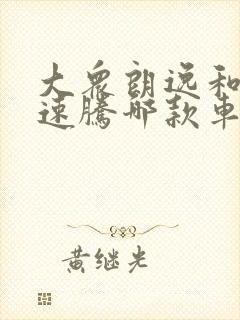 大众朗逸和
速腾哪款车
黄继光